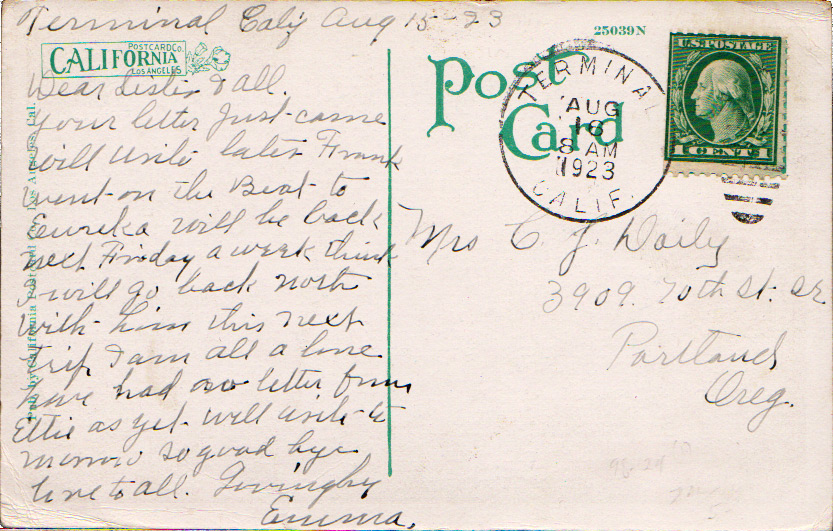 Terminal Calif Aug 15-23
25039N
POSTCARD CO.
CALIFORNIA
LOS ANGELES
Post
Card
TERMINAL
AUG
16
8 AM
1923
CALIF.
U.S. POSTAGE
1 CENT 1
Dear Sister & all.
Your letter just came
will write later Frank
went on the Boat to
Eureka will be back
next Friday a week think
I will go back north
with him this next
trip I am all a lone
have had no letter from
Ettie as yet will write to
morrow so good bye
love to all. Lovingly
Emma.
Mrs C. J. Daily
3909. 70th St. SE.
Portland
Oreg.
Pub. by California Postcard Co., Los Angeles, Cal.